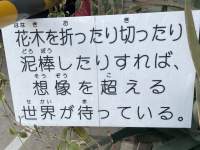 花木を折ったり切ったり
泥棒したりすれば、
想像を超える
世界が待っている。